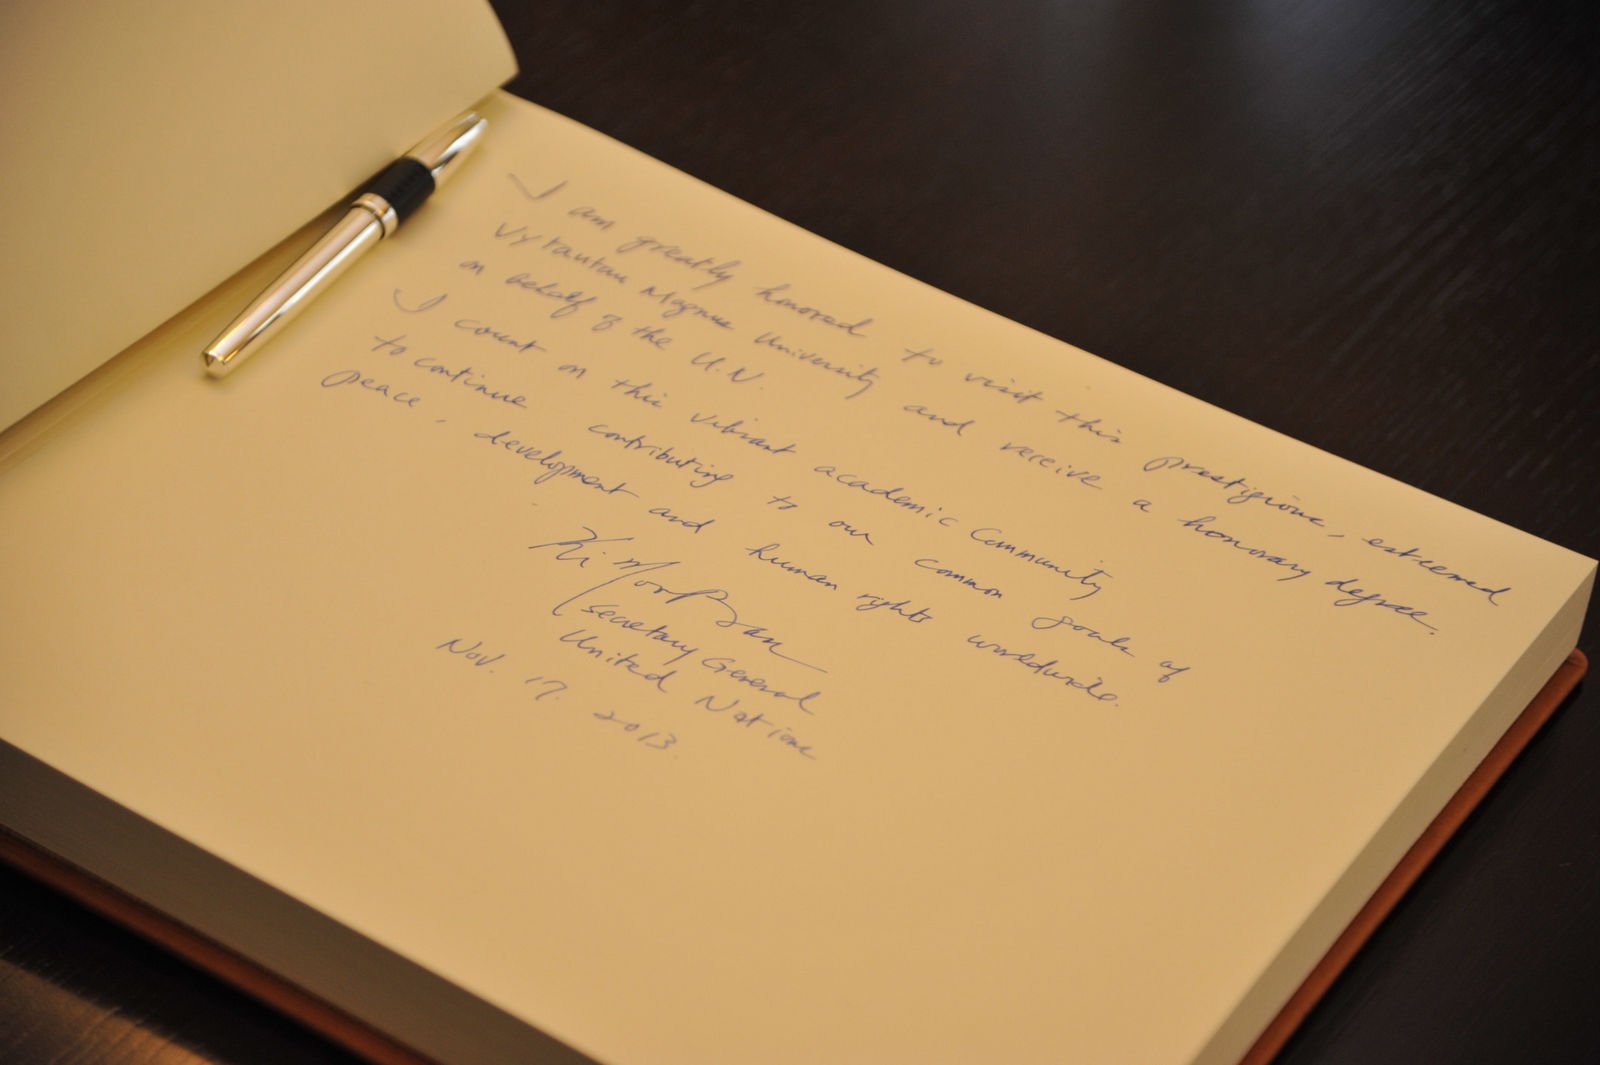 I am greatly honored to visit this prestigious, esteemed
Vytautau Magnus University and receive a honorary degree.
on behalf of the U.N.
I count on this vibrant academic Community
to continue contributing to our common goals of
peace, development and human rights worldwide.
Ki Moon Ban
Secretary General
United Nations
Nov. 17. 2013.